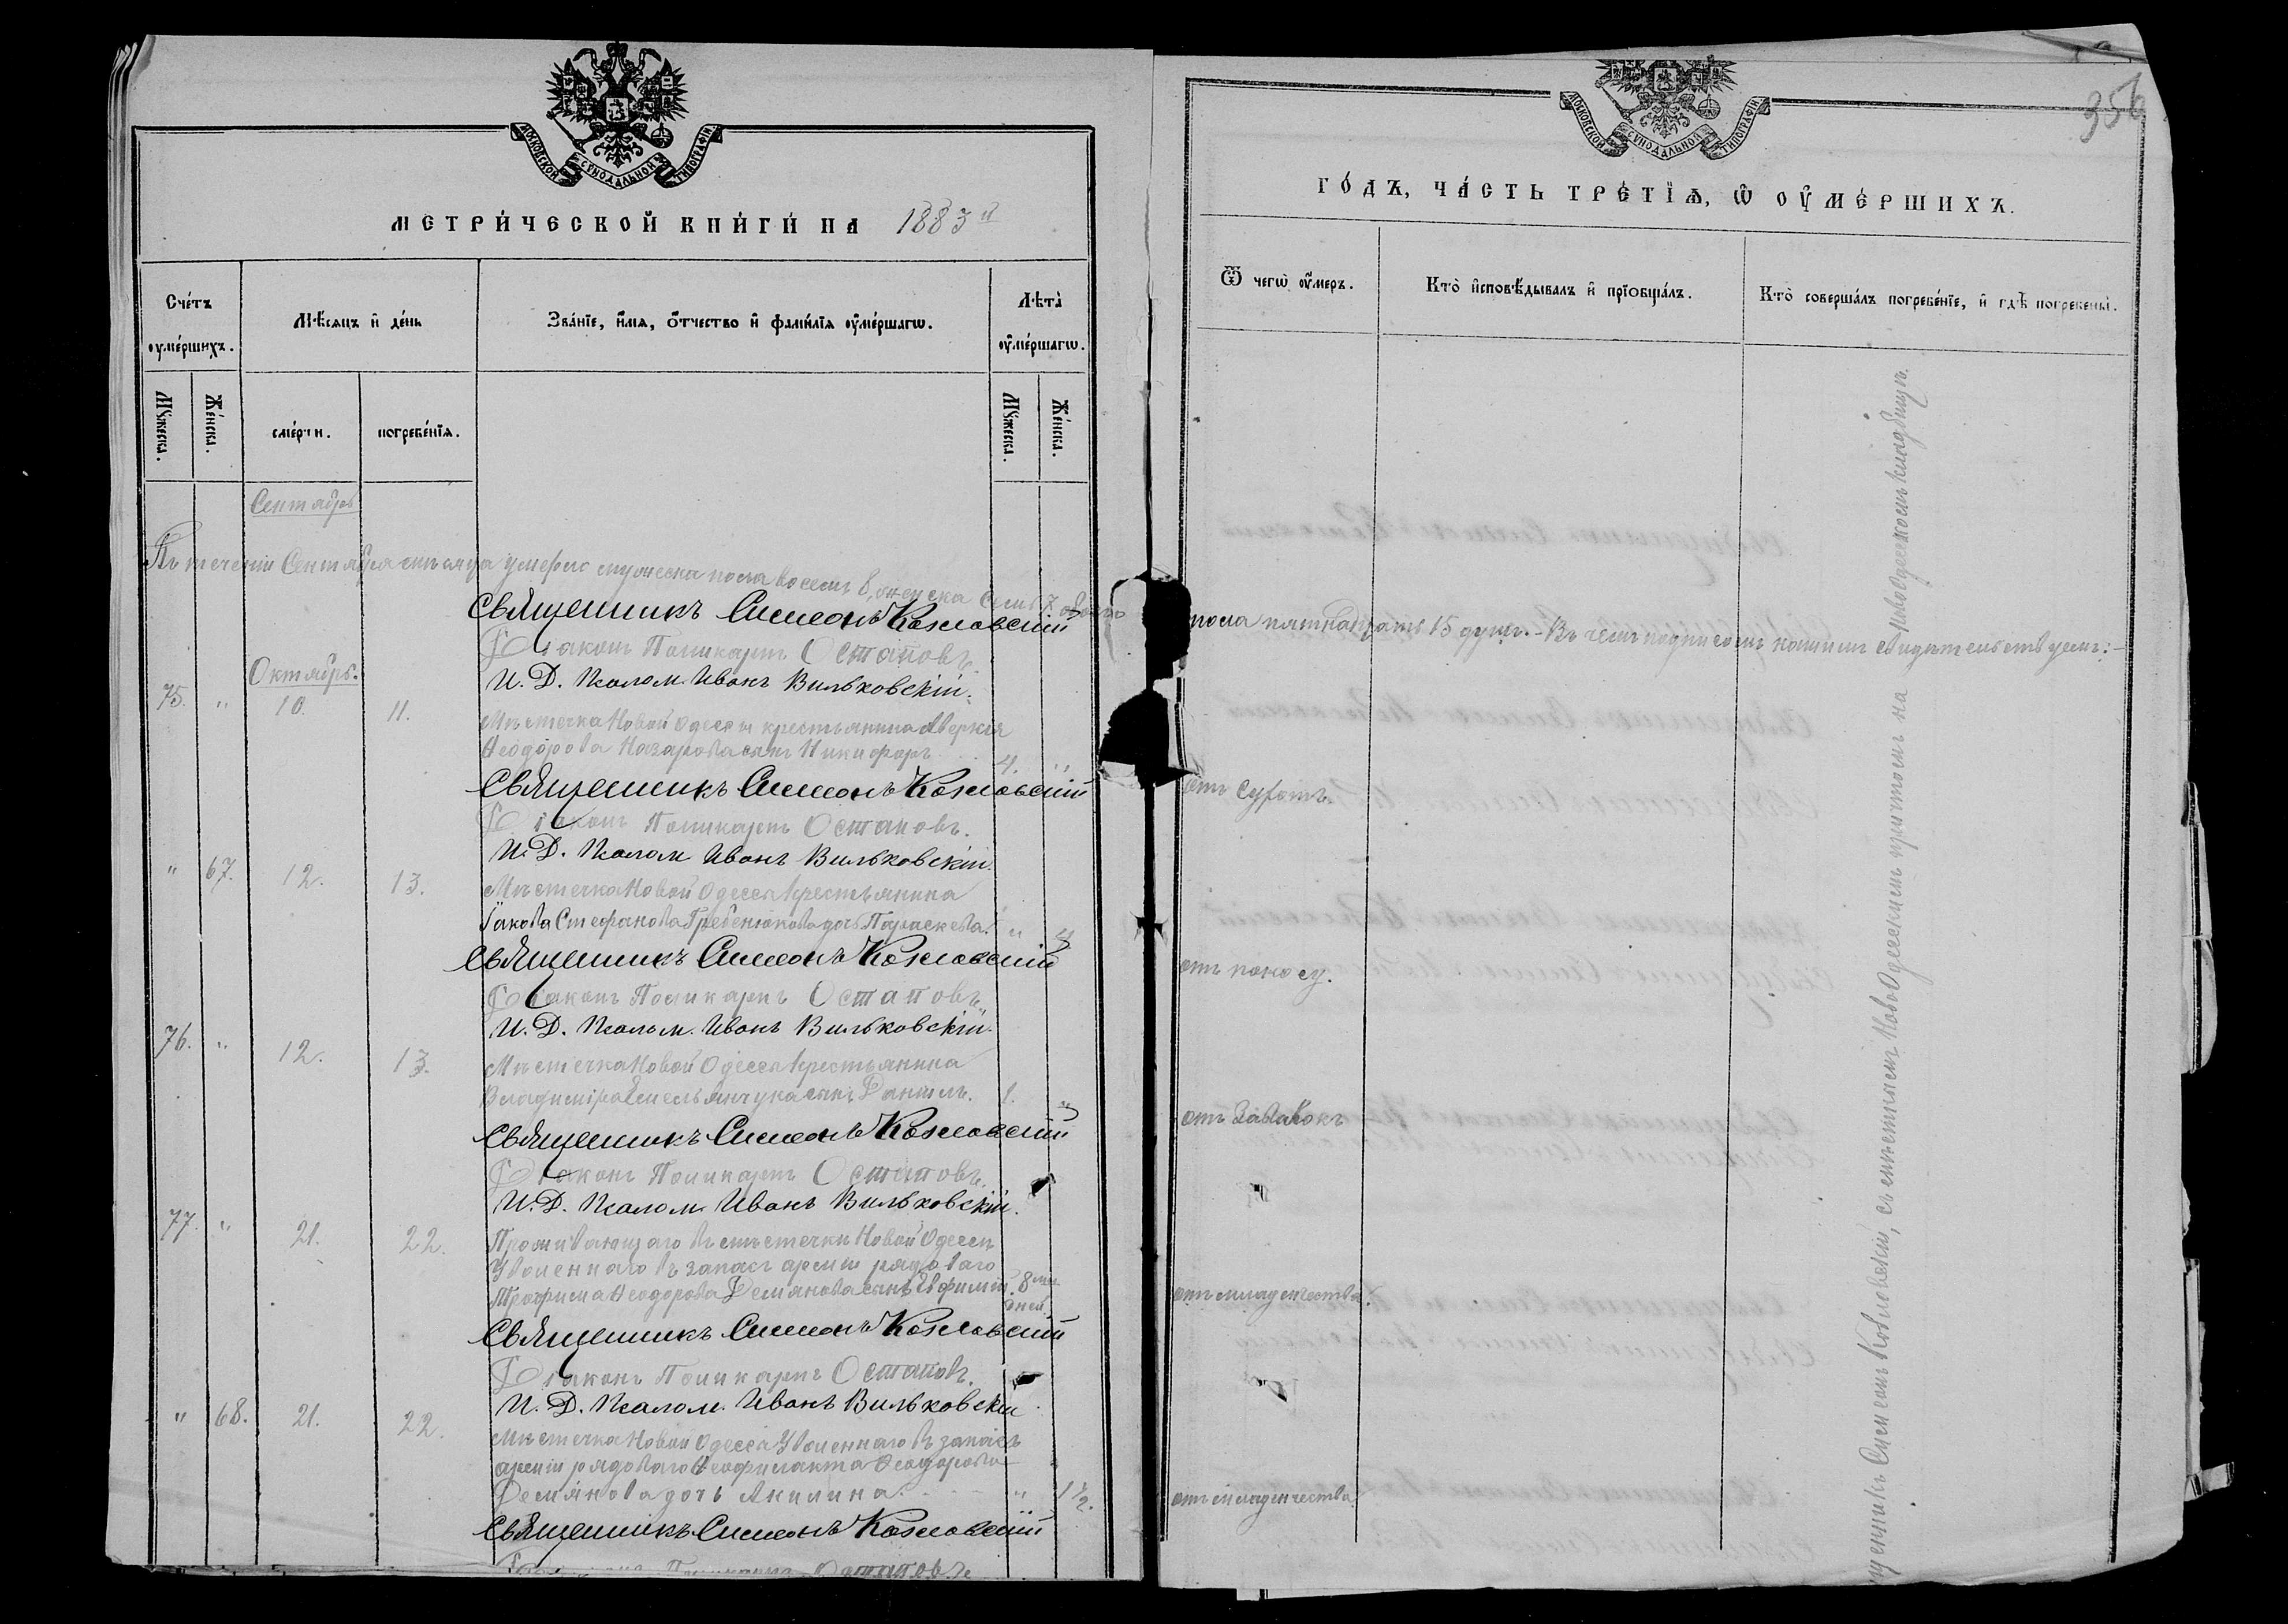 МОСКОВСКОЙ СѴНОДАЛЬНОЙ ТИПОГРАФІИ
МЕТРИ́ЧЕСКОЙ КНИ́ГИ НА 1883й
Сче́тъ ᲂу҆ме́ршихъ.
Мѣ́сяцъ и҆ де́нь
Зва́нїе, и҆́мѧ, ѻ҆́тчество и҆ фами́лїѧ ᲂу҆ме́ршагѡ.
Лѣта̀ ᲂу҆ме́ршагѡ.
Мꙋ́жеска.
Же́нска.
сме́рти.
погребе́нїѧ.
Мꙋ́жеска.
Же́нска.
Сентябрь
Въ теченіи Сентября мѣсяца умерло мужеска пола восемь 8, женска семь 7 обоего
Священникъ Симеонъ Козловскій
Діаконъ Поликарпъ Остаповъ
И. Д. Псалом. Иванъ Вильковскій.
Октябрь.
75. " 10. 11.
Мѣстечка Новой Одессы крестьянина Аверкія
Ѳеодорова Назарова сынъ Никифоръ 4. "
Священникъ Симеонъ Козловскій
Діаконъ Поликарпъ Остаповъ.
И. Д. Псалом Иванъ Вильковскій.
" 67. 12. 13.
Мѣстечка Новой Одессы крестьянина
Іакова Стефанова Гребенюкова дочь Параскева. " 4
Священникъ Симеонъ Козловскій
Діаконъ Поликарпъ Остаповъ.
И. Д. Псалом. Иванъ Вильковскій.
76. " 12. 13.
Мѣстечка Новой Одессы крестьянина
Владиміра Емельянчука сынъ Даніилъ. 1. "
Священникъ Симеонъ Козловскій
Діаконъ Поликарпъ Остаповъ.
И. Д. Псалом. Иванъ Вильковскій.
77. " 21. 22.
Проживающаго въ мѣстечкѣ Новой Одессѣ
Уволеннаго въ запасъ арміи рядоваго
Трофима Ѳеодорова Демянова сынъ Евфимій. 8ми дней.
Священникъ Симеонъ Козловскій
Діаконъ Поликарпъ Остаповъ.
И. Д. Псалом. Иванъ Вильковскій
" 68. 21. 22.
Мѣстечка Новой Одессы Уволеннаго въ запасъ
арміи рядоваго Ѳеофилакта Ѳеодорова
Демянова дочь Акилина. " 1 1/2.
Священникъ Симеонъ Козловскій
Діаконъ Поликарпъ Остаповъ
356
МОСКОВСКОЙ СѴНОДАЛЬНОЙ ТИПОГРАФІИ
ГО́ДЪ, ЧА́СТЬ ТРЕ́ТЇѦ, Ѡ҆ ОУ҆МЕ́РШИХЪ.
Ѿ чегѡ̀ ᲂу҆́меръ.
Кто̀ и҆сповѣ́дывалъ и҆ прїѡбща́лъ.
Кто̀ соверша́лъ погребе́нїе, и҆ гдѣ̀ погребены̀.
пола пятнадцать 15 душъ. - Въ чемъ подписомъ нашимъ свидѣтельствуемъ: -
отъ сухотъ.
отъ поносу.
отъ Завалокъ
отъ младенчества.
отъ младенчества.
Симеонъ Козловскій, съ мѣстнымъ НовоОдесскимъ причтомъ на НовоОдесскомъ кладбищѣ.